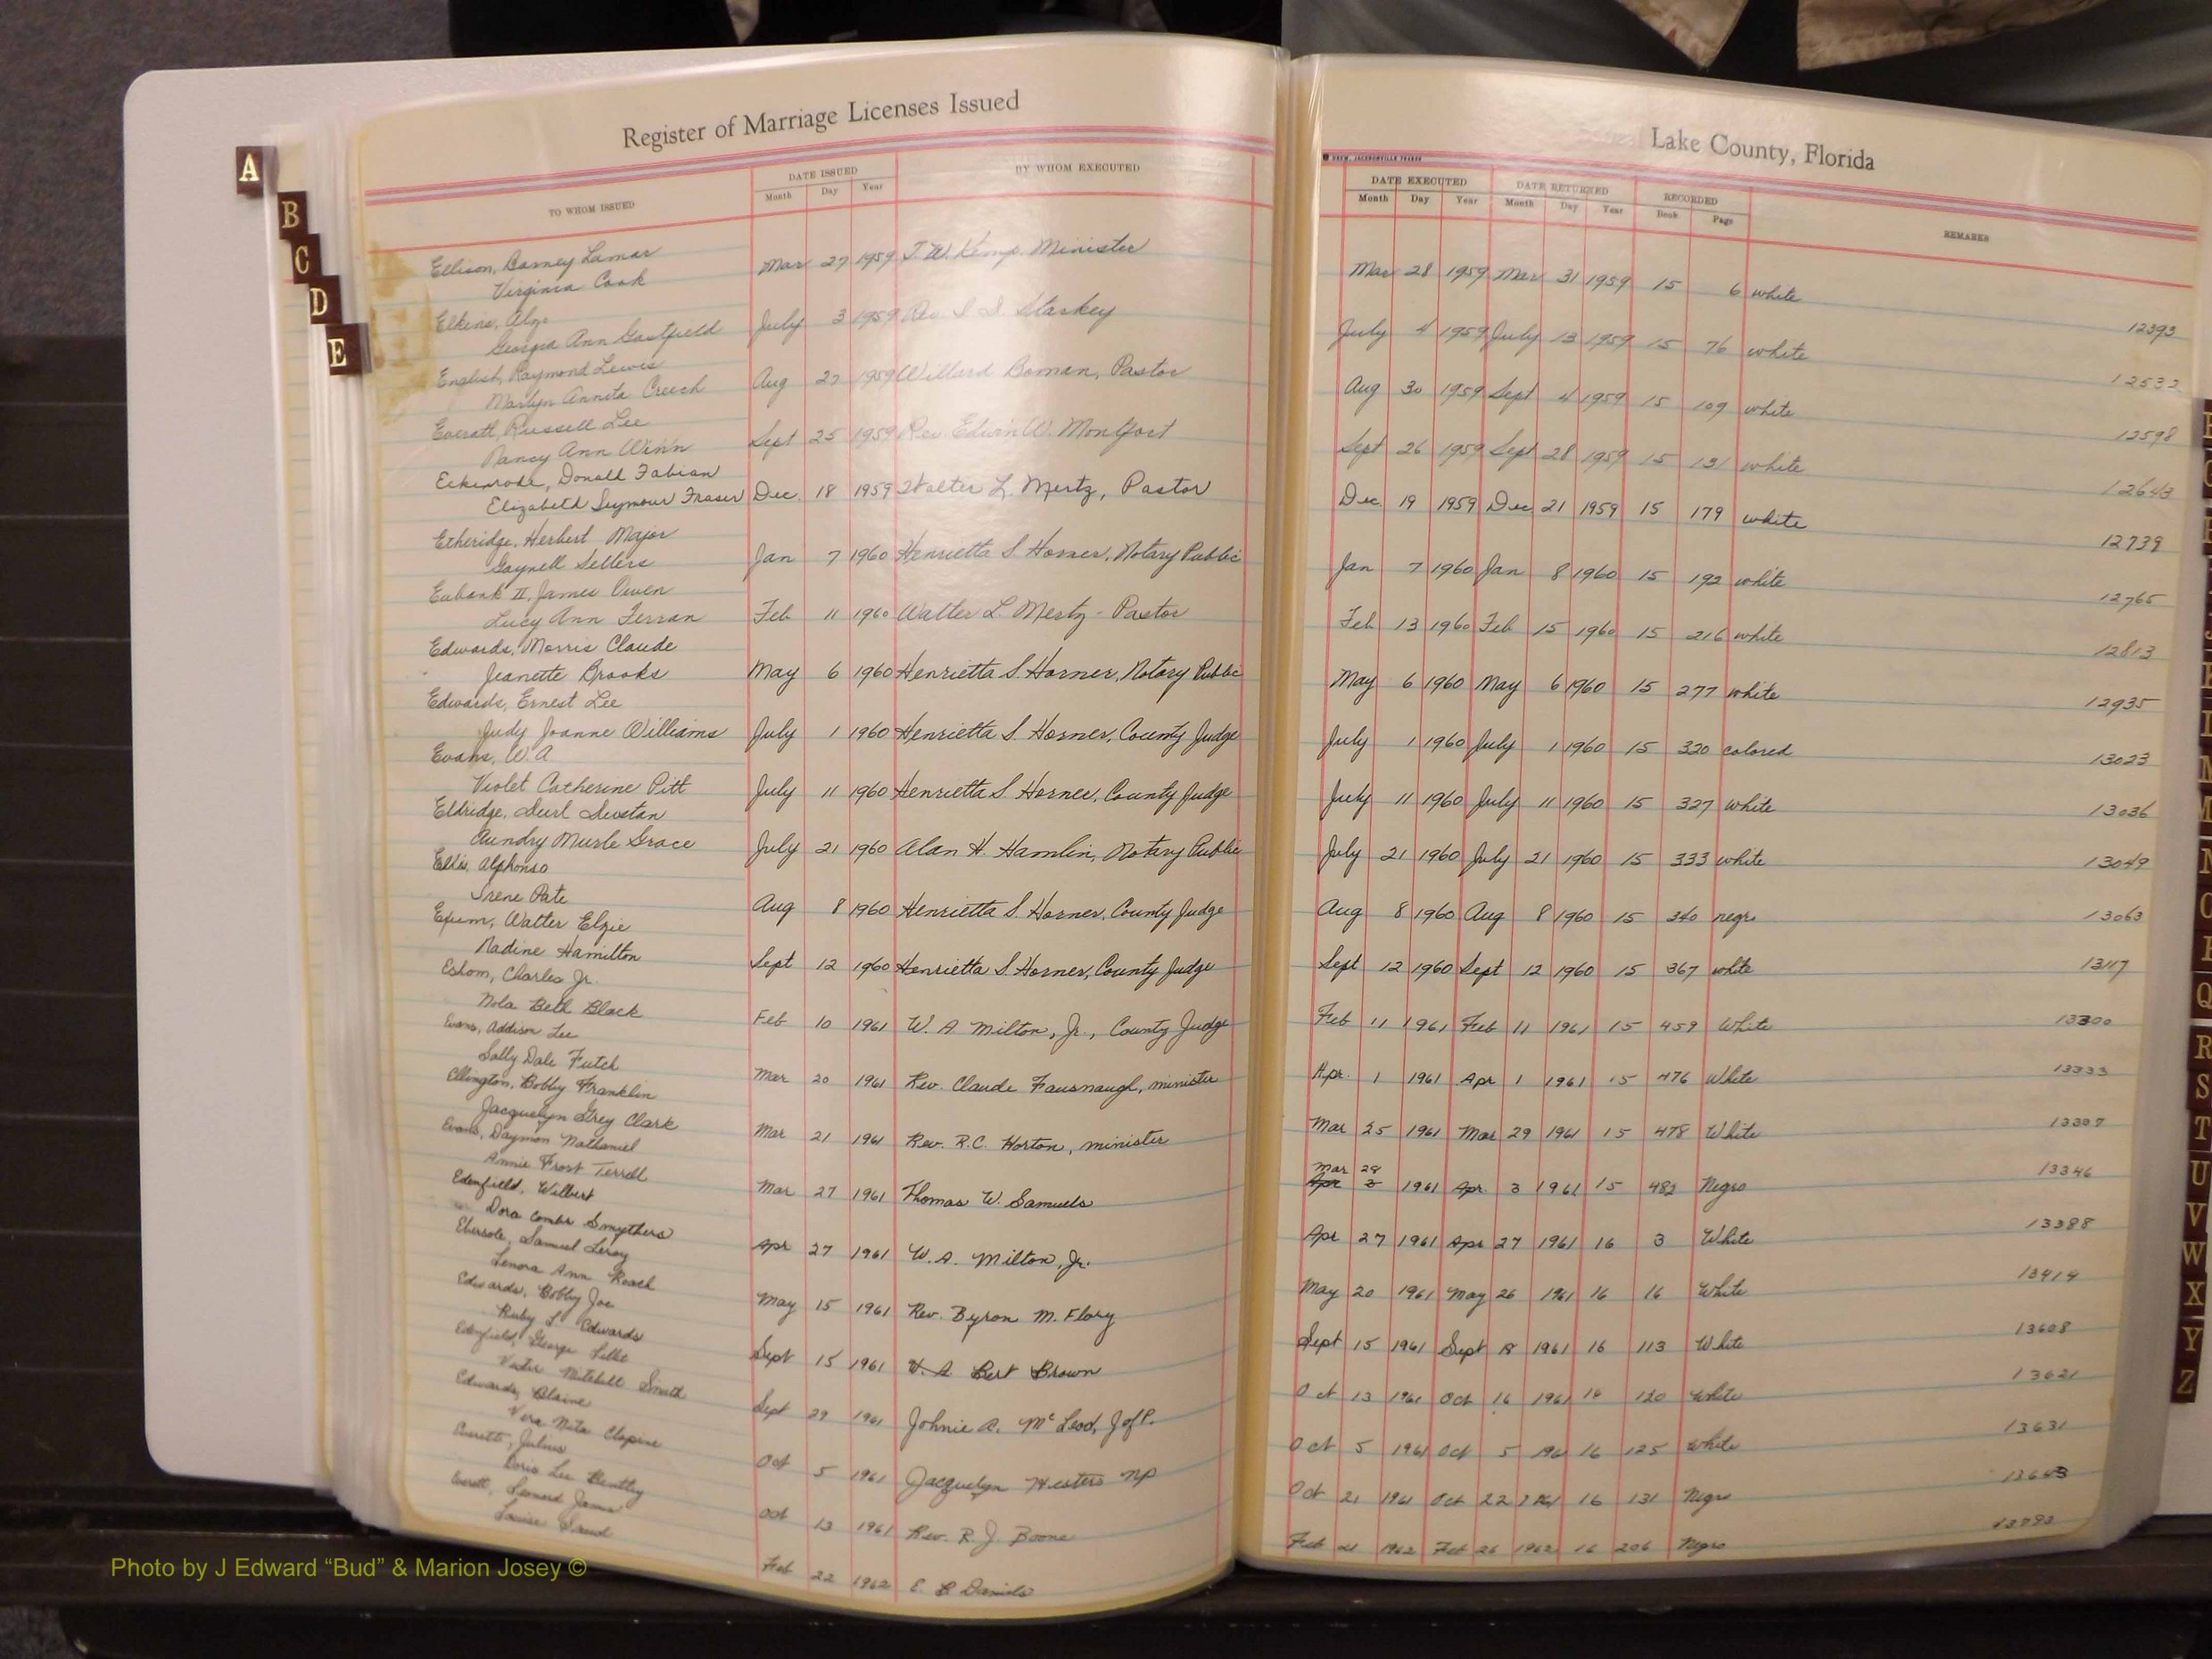 Register of Marriage Licenses Issued
TO WHOM ISSUED
DATE ISSUED
Month Day Year
BY WHOM EXECUTED
Ellison, Barney Lamar
Virginia Cook
Mar 27 1959 J. W. Kemp. Minister
Elkins,
Georgia Ann
July 3 1959 Rev. Starkey
English, Raymond Lewis
Marlyn Annita Creech
Aug 27 1959 Willard Boman, Pastor
Everatt, Russell Lee
Nancy Ann Winn
Sept 25 1959 Rev. Edwin W. Montfort
Eckenrode, Donald Fabian
Elizabeth Seymour Fraser Dec. 18 1959 Walter L. Mertz, Pastor
Etheridge, Herbert Major
Gaynell Sellers
Jan 7 1960 Henrietta S. Horner, Notary Public
Eubank II, James Owen
Lucy Ann Ferran
Feb 11 1960 Walter L. Mertz - Pastor
Edwards, Morris Claude
Jeanette Brooks
May 6 1960 Henrietta S. Horner, Notary Public
Edwards, Ernest Lee
Judy Joanne Williams
July 1 1960 Henrietta S. Horner, County Judge
Evans, W. A
Violet Catherine Pitt
July 11 1960 Henrietta S. Horner, County Judge
Eldridge,
Aundry Murle Grace
July 21 1960 Alan H. Hamlin, Notary Public
Ellis, Alphonso
Irene Pate
Aug 8 1960 Henrietta S. Horner, County Judge
Exum, Walter Elzie
Nadine Hamilton
Sept 12 1960 Henrietta S. Horner, County Judge
Eshom, Charles Jr.
Nola Beth Black
Feb 10 1961 W. A Milton, Jr., County Judge
Evans, Addison Lee
Sally Dale Futch
Mar 20 1961 Rev. Claude Fausnaugh, minister
Ellington, Bobby Franklin
Jacquelyn Grey Clark
Mar 21 1961 Rev. R.C. Horton, minister
Evans, Daymon Nathaniel
Annie Frost Terrell
Mar 27 1961 Thomas W. Samuels
Edenfield, Wilbert
Dora Combs Smythers
Apr 27 1961 W. A. Milton, Jr.
Ebersole, Samuel Leroy
Lenora Ann Roach
May 15 1961 Rev. Byron M. Flory
Edwards, Bobby Joe
Ruby L Edwards
Sept 15 1961 Bert Brown
Edenfield, George
Mitchell Smith
Sept 29 1961 Johnie A. McLeod, J of P.
Edwards, Blaine
Vera Nita
Oct 5 1961 Jacquelyn Hesters NP
Everett, Julius
Doris Lee Bentley
Oct 13 1961 Rev. R. J. Boone
Everett, Leonard James
Louise
Feb 22 1962 E. B. Daniels
Lake County, Florida
DATE EXECUTED
Month Day Year
DATE RETURNED
Month Day Year
RECORDED
Book Page
REMARKS
Mar 28 1959 Mar 31 1959 15 6 white 12393
July 4 1959 July 13 1959 15 76 white 12532
Aug 30 1959 Sept 4 1959 15 109 white 12598
Sept 26 1959 Sept 28 1959 15 131 white 12643
Dec. 19 1959 Dec 21 1959 15 179 white 12739
Jan 7 1960 Jan 8 1960 15 192 white 12765
Feb 13 1960 Feb 15 1960 15 216 white 12813
May 6 1960 May 6 1960 15 277 white 12935
July 1 1960 July 1 1960 15 320 colored 13023
July 11 1960 July 11 1960 15 327 white 13036
July 21 1960 July 21 1960 15 333 white 13049
Aug 8 1960 Aug 8 1960 15 340 negro 13063
Sept 12 1960 Sept 12 1960 15 367 white 13117
Feb 11 1961 Feb 11 1961 15 459 White 13300
Apr. 1 1961 Apr 1 1961 15 476 White 13333
Mar 25 1961 Mar 29 1961 15 478 White 13337
Mar 28
Apr 3 1961 Apr. 3 1961 15 482 Negro 13346
Apr 27 1961 Apr 27 1961 16 3 White 13388
May 20 1961 May 26 1961 16 16 White 13414
Sept 15 1961 Sept 18 1961 16 113 White 13608
Oct 13 1961 Oct 16 1961 16 120 White 13621
Oct 5 1961 Oct 5 1961 16 125 White 13631
Oct 21 1961 Oct 22 1961 16 131 Negro 13643
Feb 1962 Feb 26 1962 16 206 Negro 13793
A
B
C
D
E
Q
R
S
T
U
V
W
X
Y
Z
Photo by J Edward “Bud” & Marion Josey ©